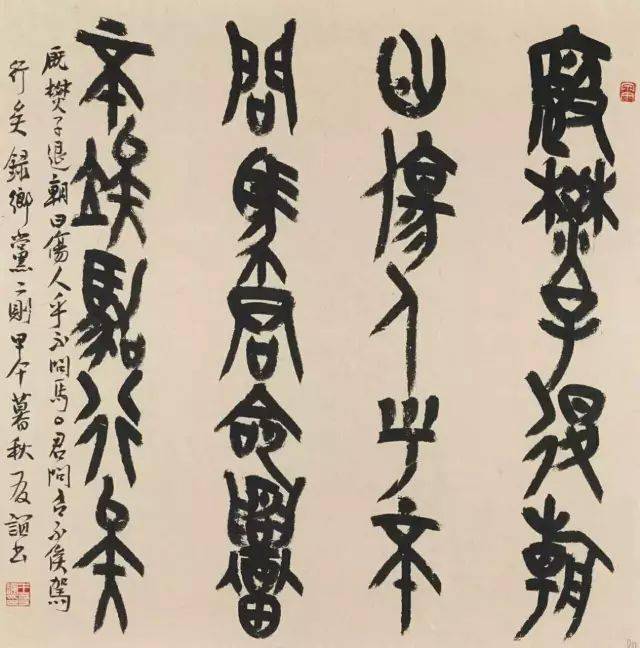 廄焚子退朝
曰傷人乎不
問馬君命召
不俟駕行矣
厩焚子退朝曰傷人乎不問馬君問召不俟駕
行矣錄鄉黨二則甲午暮秋友誼書